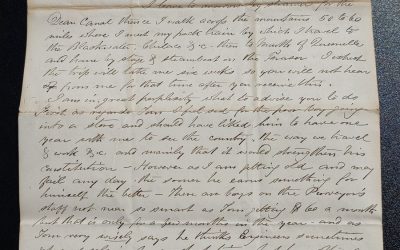 I leave to morrow by steamer for the
Dean Canal thence I walk across the mountains 50 to 60
miles where I meet my pack train by which I travel to
the Blackwater, Chilaco &c. then to Mouth of Quesnelle
and home by stage & steamboat on the Fraser. I expect
the trip will take me six weeks so you will not hear
from me for that time after you receive this.
I am in great perplexity what to advise you to do
first as regards Tom. I feel sad for the poor Boy going
into a store and should have liked him to have one
year with me to see the country, the way we travel
& work &c and mainly that it would strengthen his
constitution - However as I am getting old and may
fail any day the sooner he can something for
himself the better - There are boys on the Surveyors
staff not near so smart as Tom getting $60 a month
but that is only for a few months in the year - and as
Tom very wisely says he thinks Engineers sometimes